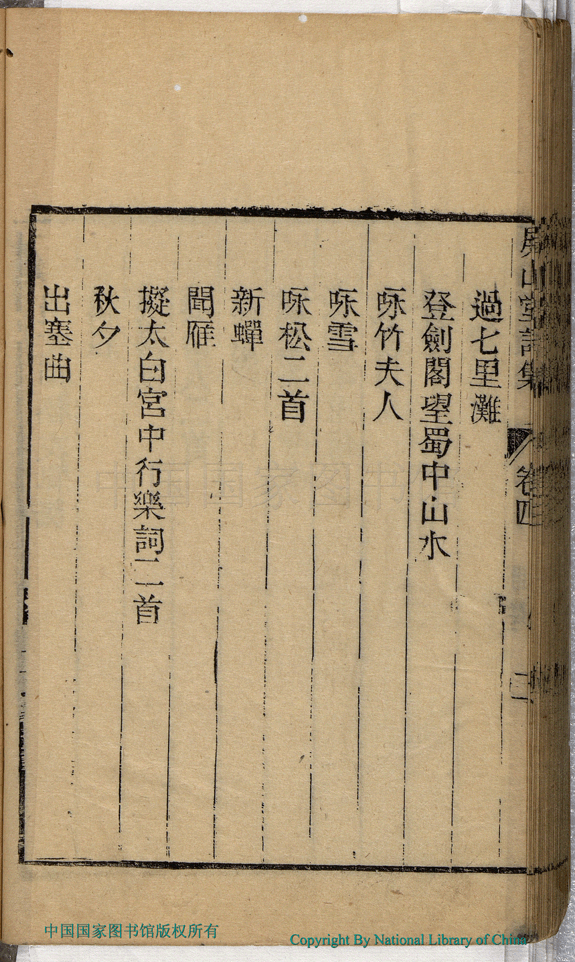 過七里灘
登劍閣望蜀中山水
咏竹夫人
咏雪
咏松二首
新蟬
聞雁
擬太白宮中行樂詞二首
秋夕
出塞曲
山堂詩集
卷四
二
中国国家图书馆
中国国家图书馆版权所有
Copyright By National Library of China